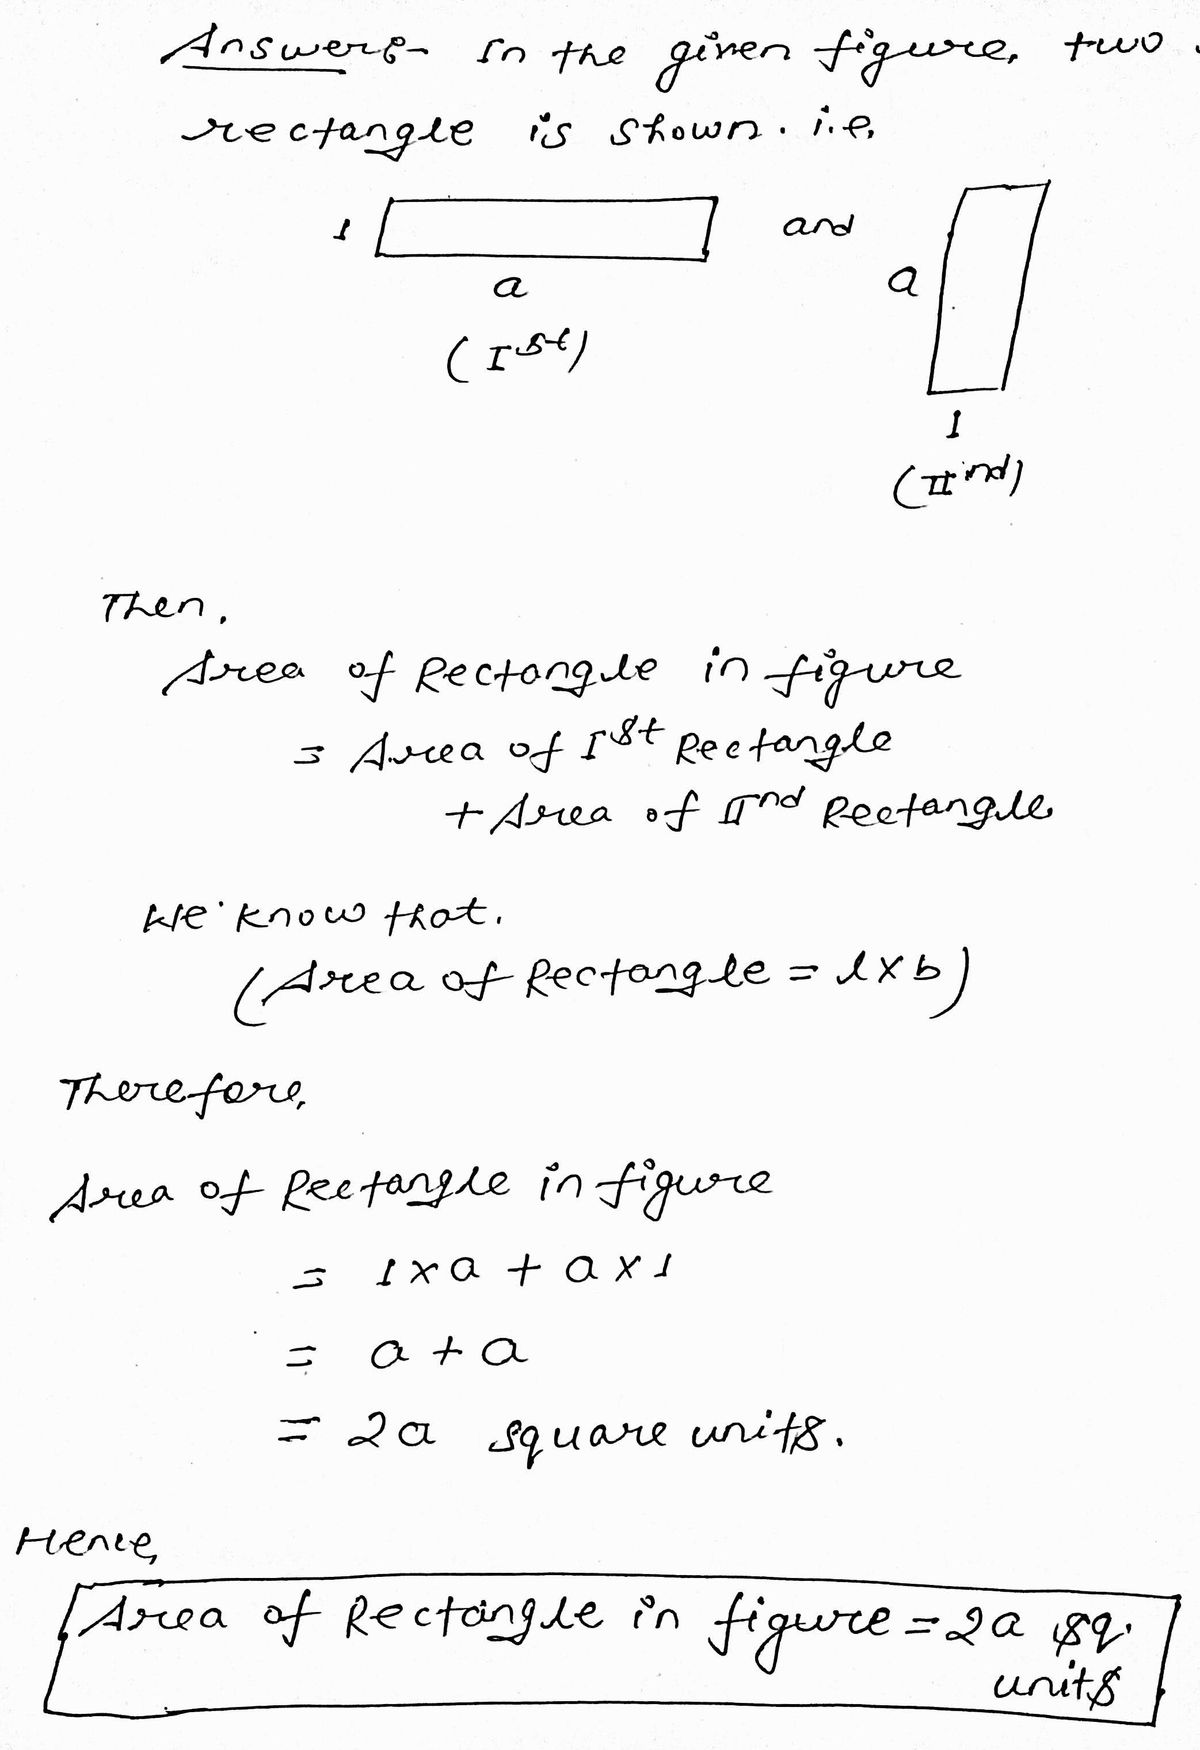 Answer:- In the given figure, two
rectangle is shown. i.e.
1
and
a
a
(Ist)
1
(IInd)
Then,
Area of Rectangle in figure
= Area of Ist Rectangle
+ Area of IInd Rectangle
We know that.
(Area of Rectangle = l×b)
Therefore,
Area of Rectangle in figure
= 1×a + a×1
= a + a
= 2a square units.
Hence,
Area of Rectangle in figure = 2a sq.
units